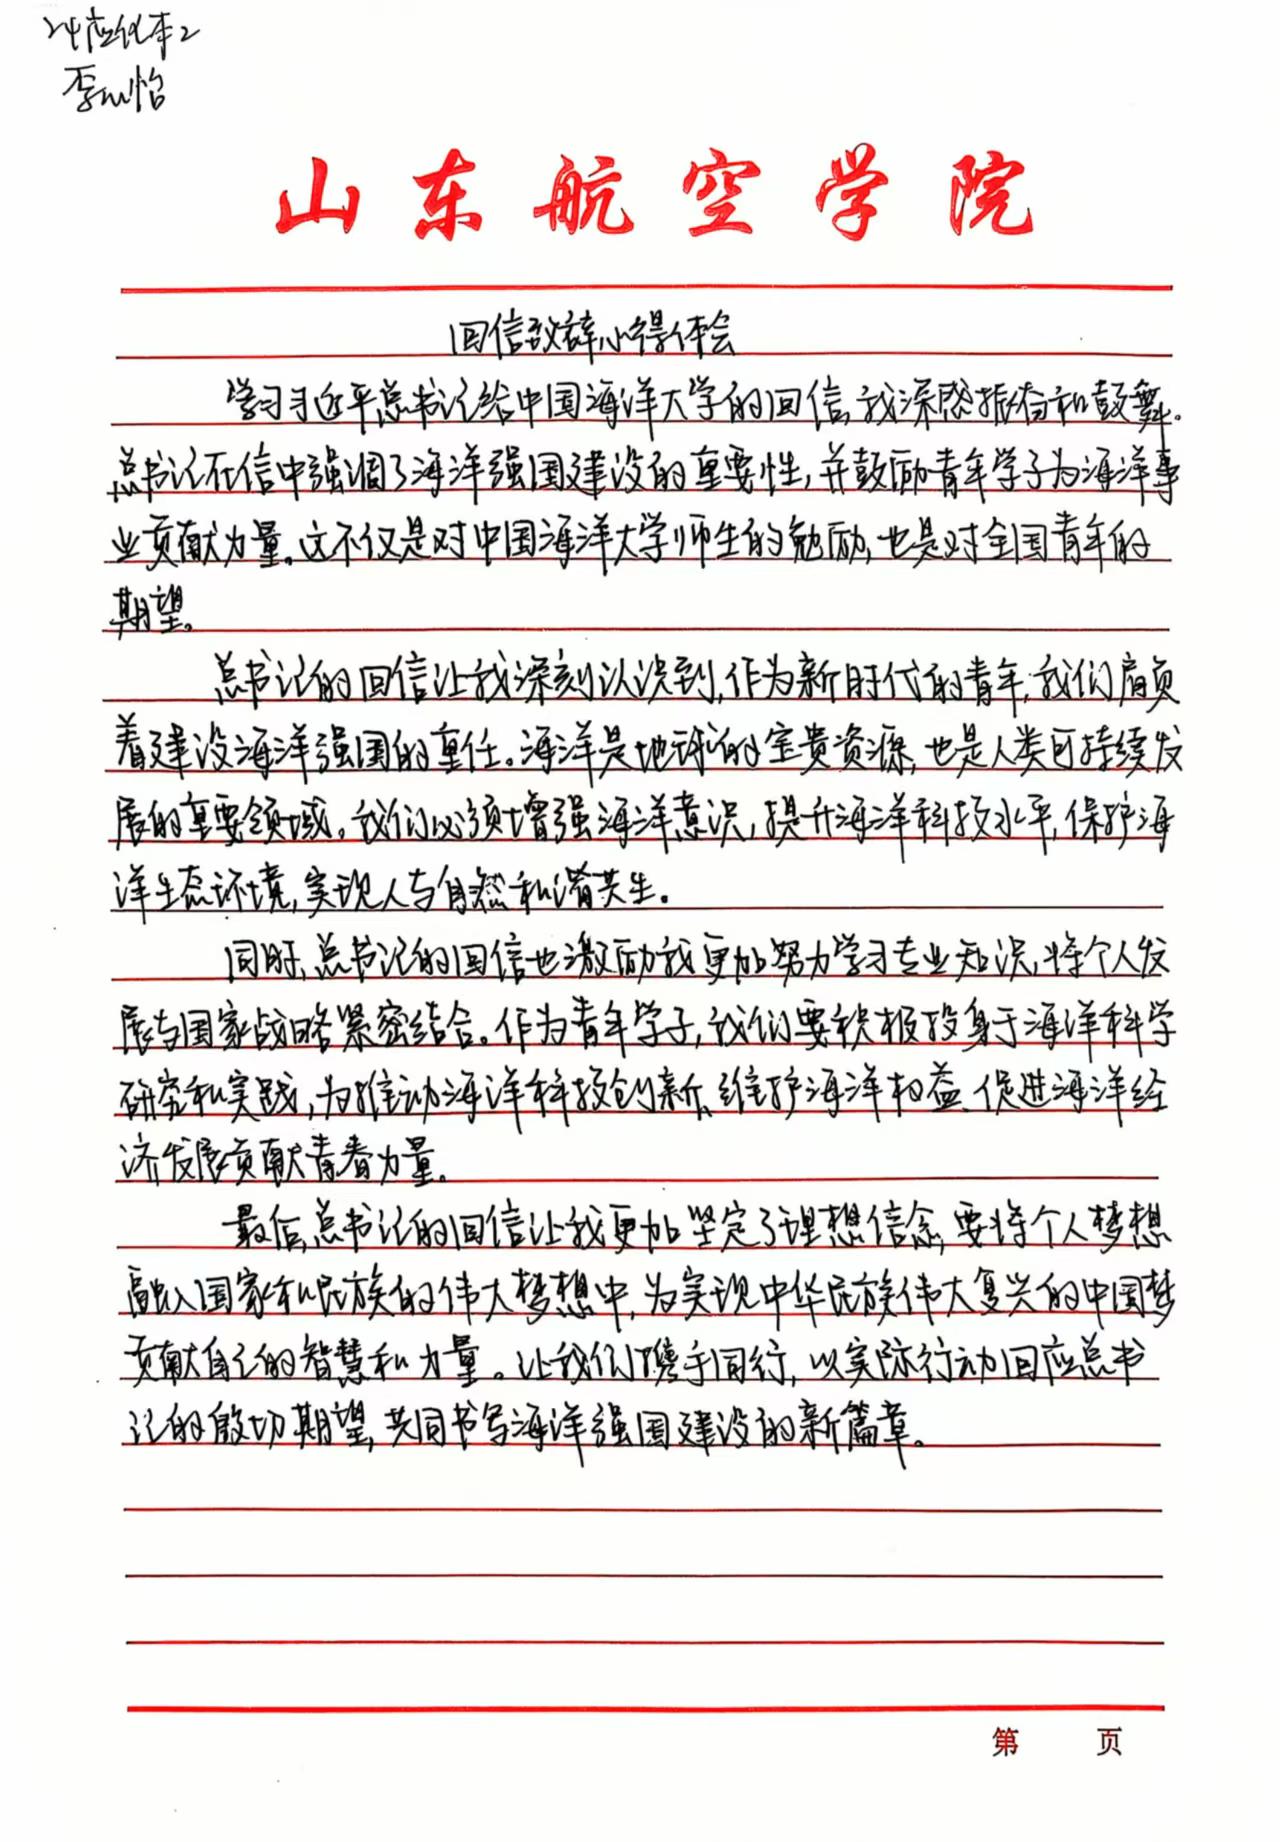 24应化本2
李心怡
山东航空学院
回信致辞心得体会
学习习近平总书记给中国海洋大学的回信,我深感振奋和鼓舞。
总书记在信中强调了海洋强国建设的重要性,并鼓励青年学子为海洋事
业贡献力量。这不仅是对中国海洋大学师生的勉励,也是对全国青年的
期望。
总书记的回信让我深刻认识到,作为新时代的青年,我们肩负
着建设海洋强国的重任。海洋是地球的宝贵资源,也是人类可持续发
展的重要领域。我们必须增强海洋意识,提升海洋科技水平,保护海
洋生态环境,实现人与自然和谐共生。
同时,总书记的回信也激励我更加努力学习专业知识,将个人发
展与国家战略紧密结合。作为青年学子,我们要积极投身于海洋科学
研究和实践,为推动海洋科技创新、维护海洋权益、促进海洋经
济发展贡献青春力量。
最后,总书记的回信让我更加坚定了理想信念,要将个人梦想
融入国家和民族的伟大梦想中,为实现中华民族伟大复兴的中国梦
贡献自己的智慧和力量。让我们携手同行,以实际行动回应总书
记的殷切期望,共同书写海洋强国建设的新篇章。
第 页